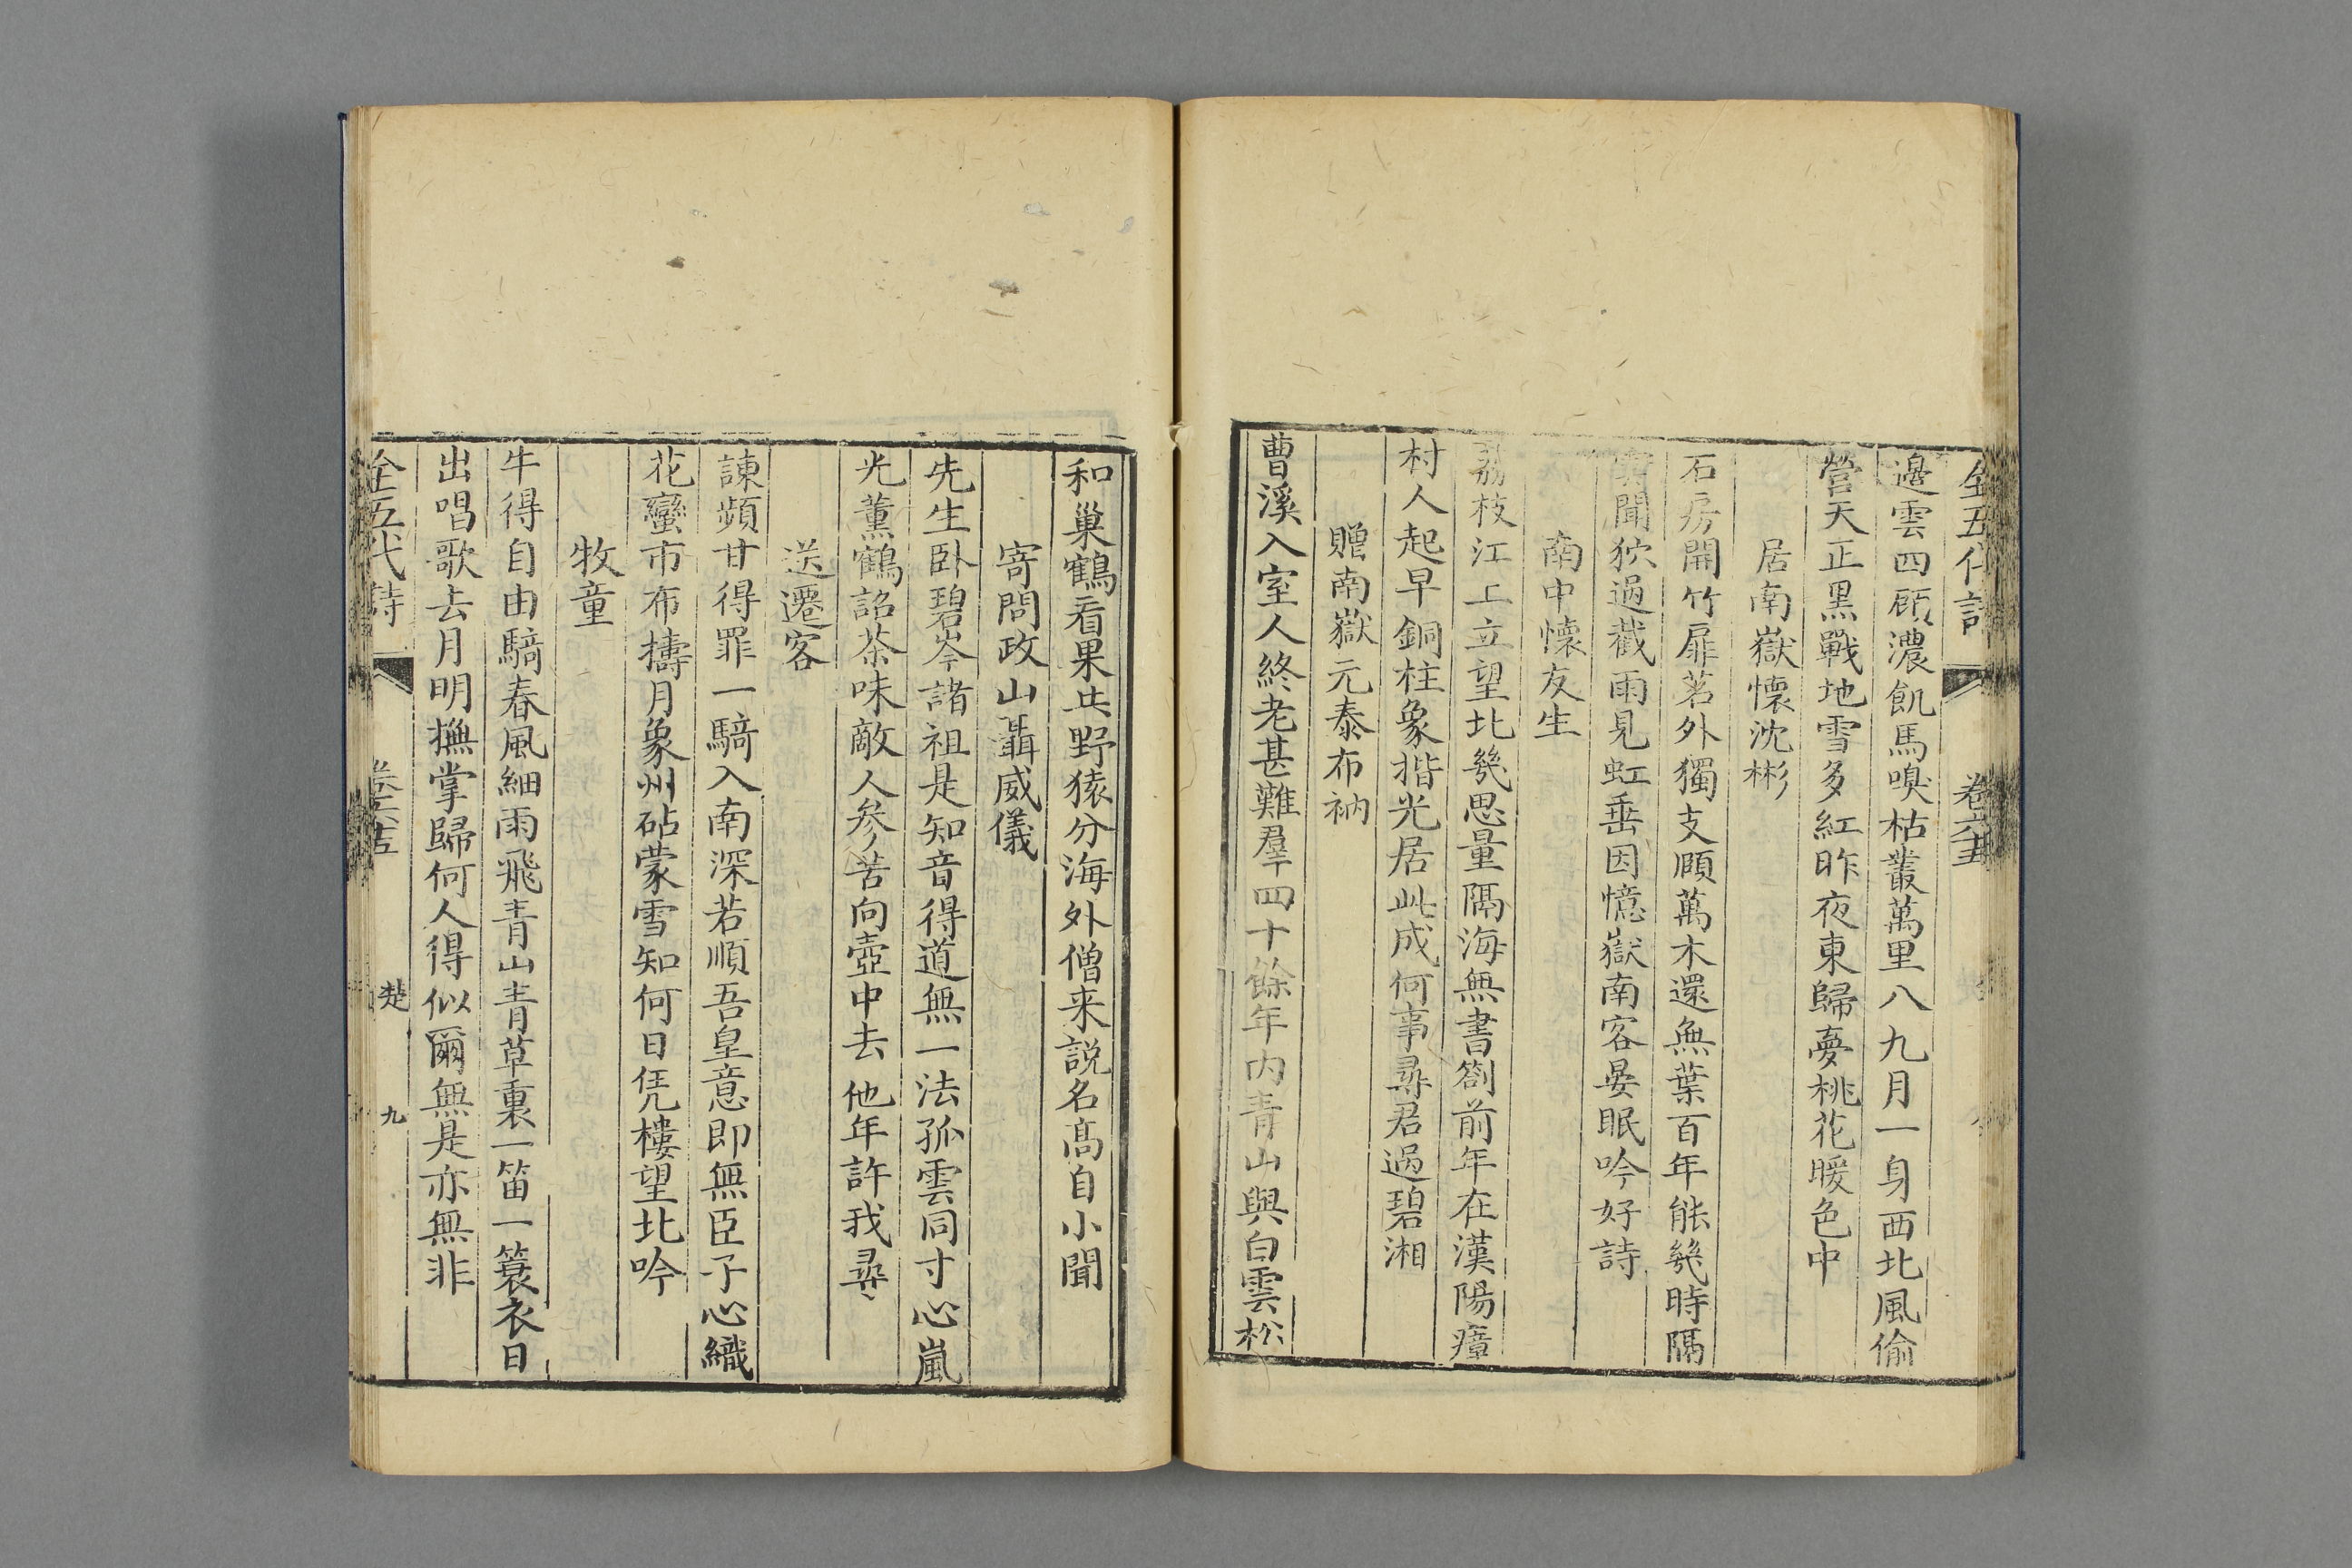 全五代詩 卷六十五
邉雲四顧濃飢馬嗅枯叢萬里八九月一身西北風偷
營天正黑戰地雪多紅昨夜東歸夢桃花暖色中
居南嶽懷沈彬
石房開竹扉茗外獨支頤萬木還無葉百年能幾時隔
雲聞狖過截雨見虹垂因憶嶽南客晏眠吟好詩
南中懷友生
荔枝江上立望北幾思量隔海無書劄前年在漢陽瘴
村人起早銅柱象揩光居此成何事尋君過碧湘
贈南嶽元泰布衲
曹溪入室人終老甚難羣四十餘年内青山與白雲松
和巢鶴看果共野猿分海外僧来說名髙自小聞
寄問政山聶威儀
先生卧碧岑諸祖是知音得道無一法孤雲同寸心嵐
光薰鶴詔茶味敵人參苦向壺中去他年許我尋
送遷客
諫頻甘得罪一騎入南深若順吾皇意即無臣子心織
花蠻市布擣月象州砧蒙雪知何日凭樓望北吟
牧童
牛得自由騎春風細雨飛青山青草裏一笛一簑衣日
出唱歌去月明撫掌歸何人得似爾無是亦無非
全五代詩 卷六十五 楚 九